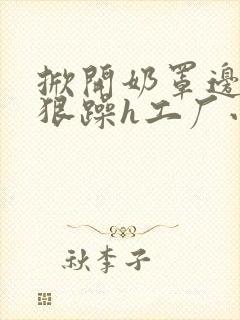 掀開奶罩邊
狠躁h工厂
秋李子